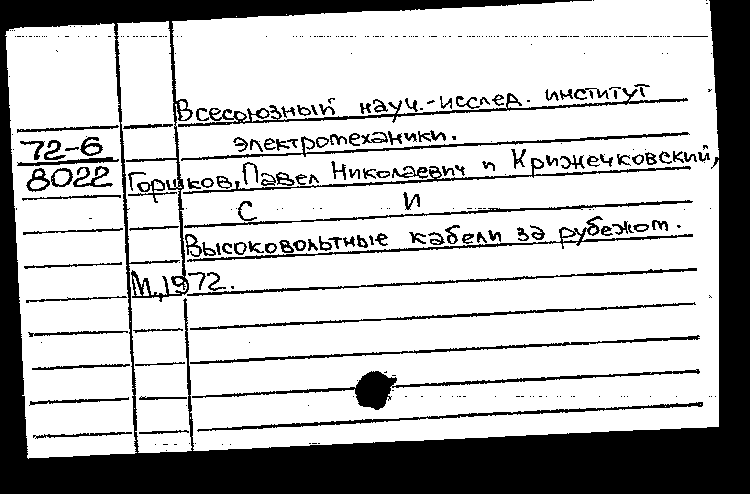 Всесоюзный науч.-исслед. институт
72-6
электромеханики.
8022
Горшков, Павел Николаевич и Крижечковский,
С И
Высоковольтные кабели за рубежом.
М., 1972.